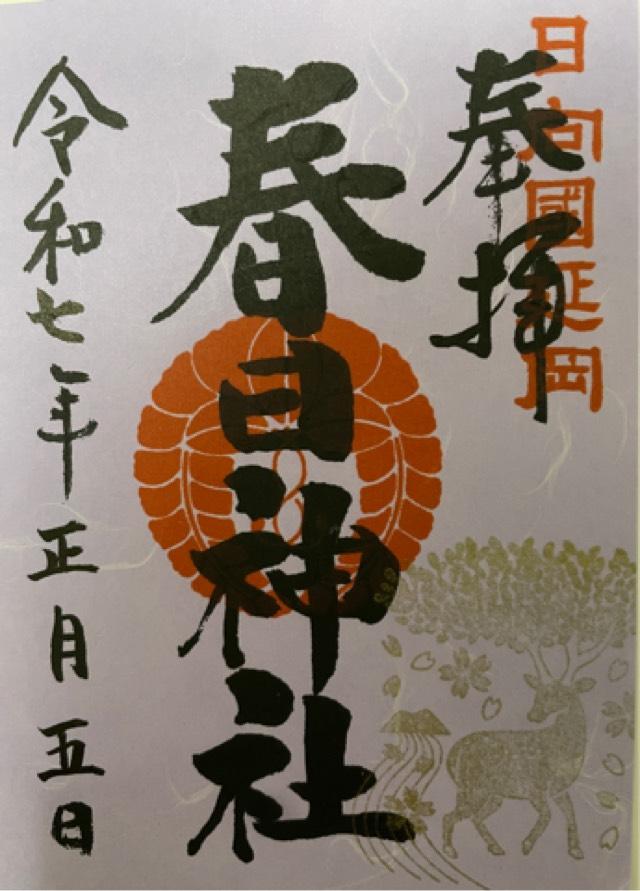 日向國延岡
奉拝
春日神社
令和七年正月五日